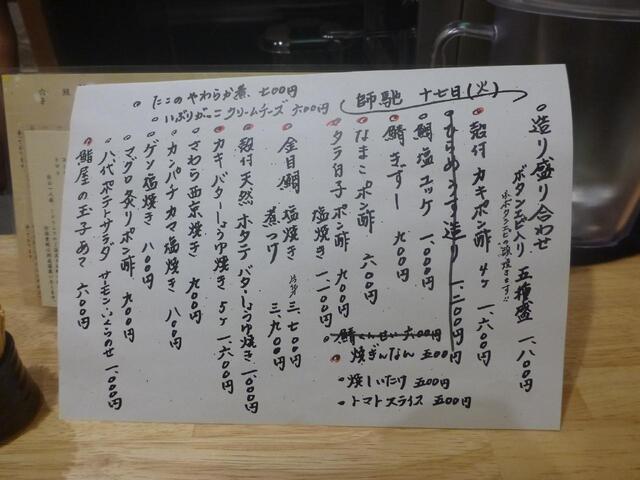 師馳 十七日(火)
造り盛り合わせ
ボタンエビ入り 五種盛 一、八〇〇円
※ボタンエビの頭焼きます!!
殻付 カキポン酢 4ヶ 一、六〇〇円
ひらめうす造り 一、二〇〇円
鯛塩ユッケ 一、〇〇〇円
鯖きずし 九〇〇円
なまこポン酢 六〇〇円
タラ白子 ポン酢 九〇〇円
塩焼き 一、一〇〇円
金目鯛 塩焼き 三、七〇〇円
煮つけ 三、九〇〇円
殻付 天然 ホタテ バタ・しょうゆ焼き 一、〇〇〇円
カキ バターしょうゆ焼き 5ヶ 一、六〇〇円
さわら西京焼き 九〇〇円
カンパチカマ塩焼き 八〇〇円
ゲソ塩焼き 八〇〇円
マグロ炙りポン酢 九〇〇円
八代ポテトサラダ サーモン・いくらのせ 一、〇〇〇円
鮨屋の玉子あて 六〇〇円
たこのやわらか煮 七〇〇円
いぶりがっこクリームチーズ 六〇〇円
鯖くんせい 六〇〇円
焼ぎんなん 五〇〇円
焼しいたけ 五〇〇円
トマトスライス 五〇〇円